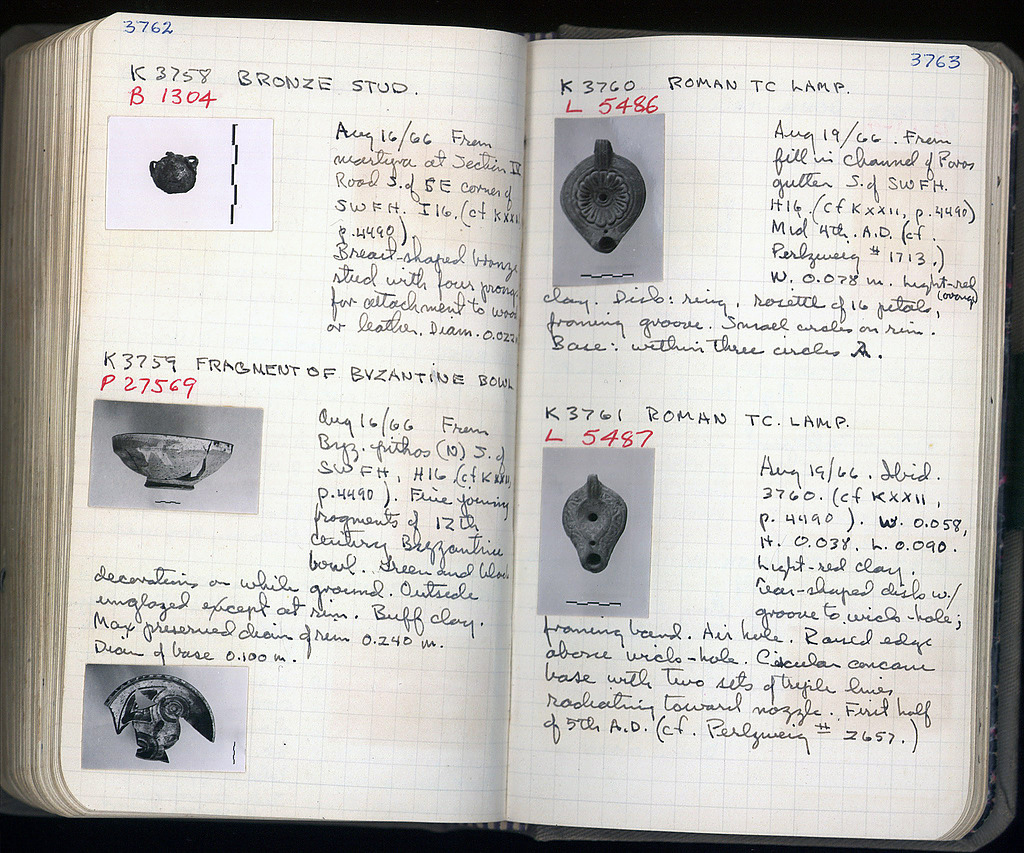 3762
K 3758 BRONZE STUD.
B 1304
Aug 16/66 From
martyra at Section IV
Road S. of SE corner of
SWFH. I 16. (cf KXXII,
p. 4490)
Breast-shaped bronze
stud with four prongs
for attachment to wood
or leather. Diam. 0.022
K 3759 FRAGMENT OF BYZANTINE BOWL
P 27569
Aug 16/66 From
Byz. pithos (N) S. of
SWFH, H16 (cf KXXII,
p. 4490). Five joining
fragments of 12th
century Byzantine
bowl. Green and black
decorations on white ground. Outside
unglazed except at rim. Buff clay.
Max preserved diam of rim 0.240 m.
Diam of base 0.100 m.
3763
K 3760 ROMAN TC LAMP.
L 5486
Aug 19/66. From
fill in channel of Poros
gutter S. of SWFH.
H16. (cf KXXII, p. 4490)
Mid 4th. A.D. (cf.
Perlzweig # 1713.)
W. 0.078 m. Light-red
(orange)
clay. Disk: ring, rosette of 16 petals,
framing groove. Small circles on rim.
Base: within three circles A.
K 3761 ROMAN TC. LAMP.
L 5487
Aug 19/66. Ibid.
3760. (cf KXXII,
p. 4490). W. 0.058,
H. 0.038. L. 0.090.
Light-red clay.
Tear-shaped disk w/
groove to wick-hole;
framing band. Air hole. Raised edge
above wick-hole. Circular concave
base with two sets of triple lines
radiating toward nozzle. First half
of 5th A.D. (cf. Perlzweig # 2657.)